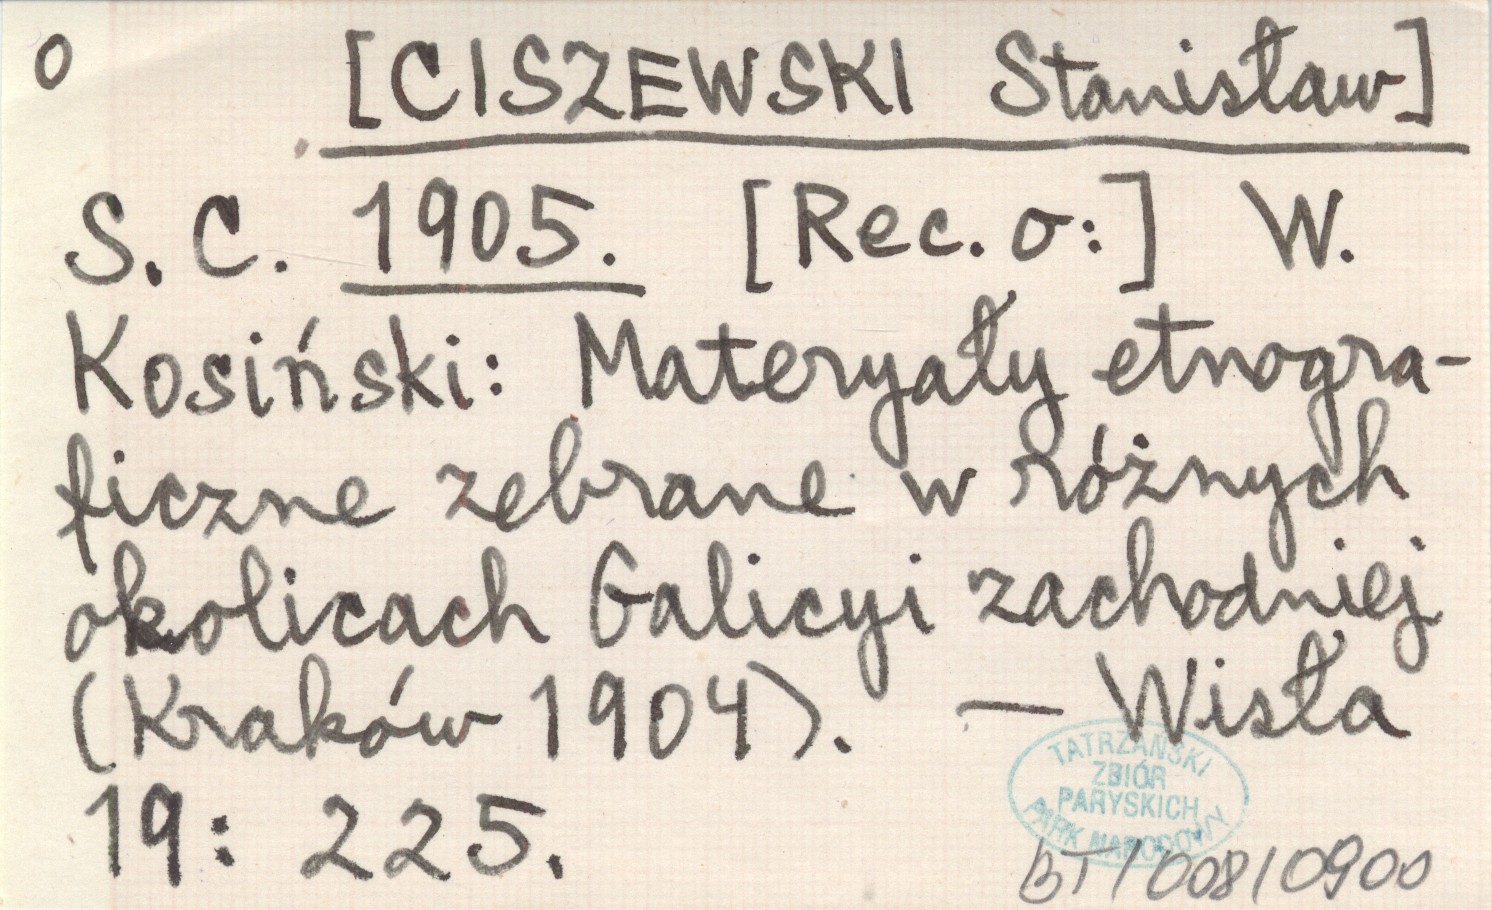 o [CISZEWSKI Stanisław]
S. C. 1905. [Rec. o:] W.
Kosiński: Materyały etnogra-
ficzne zebrane w różnych
okolicach Galicyi zachodniej
(Kraków 1904). — Wisła
19: 225.
TATRZAŃSKI
ZBIÓR
PARYSKICH
PARK NARODOWY
BT/008/0900